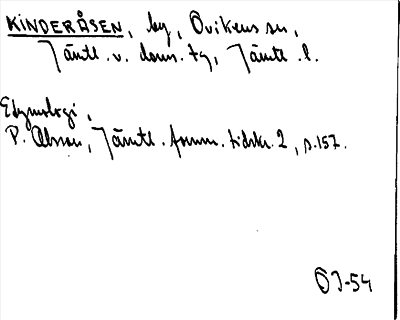 KINDERÅSEN, by, Ovikens sn,
Jämtl. v. doms. tg, Jämtl. l.
Etymologi,
P. Olsson, Jämtl. fornm. tidskr. 2, s. 157.
ÖJ-54